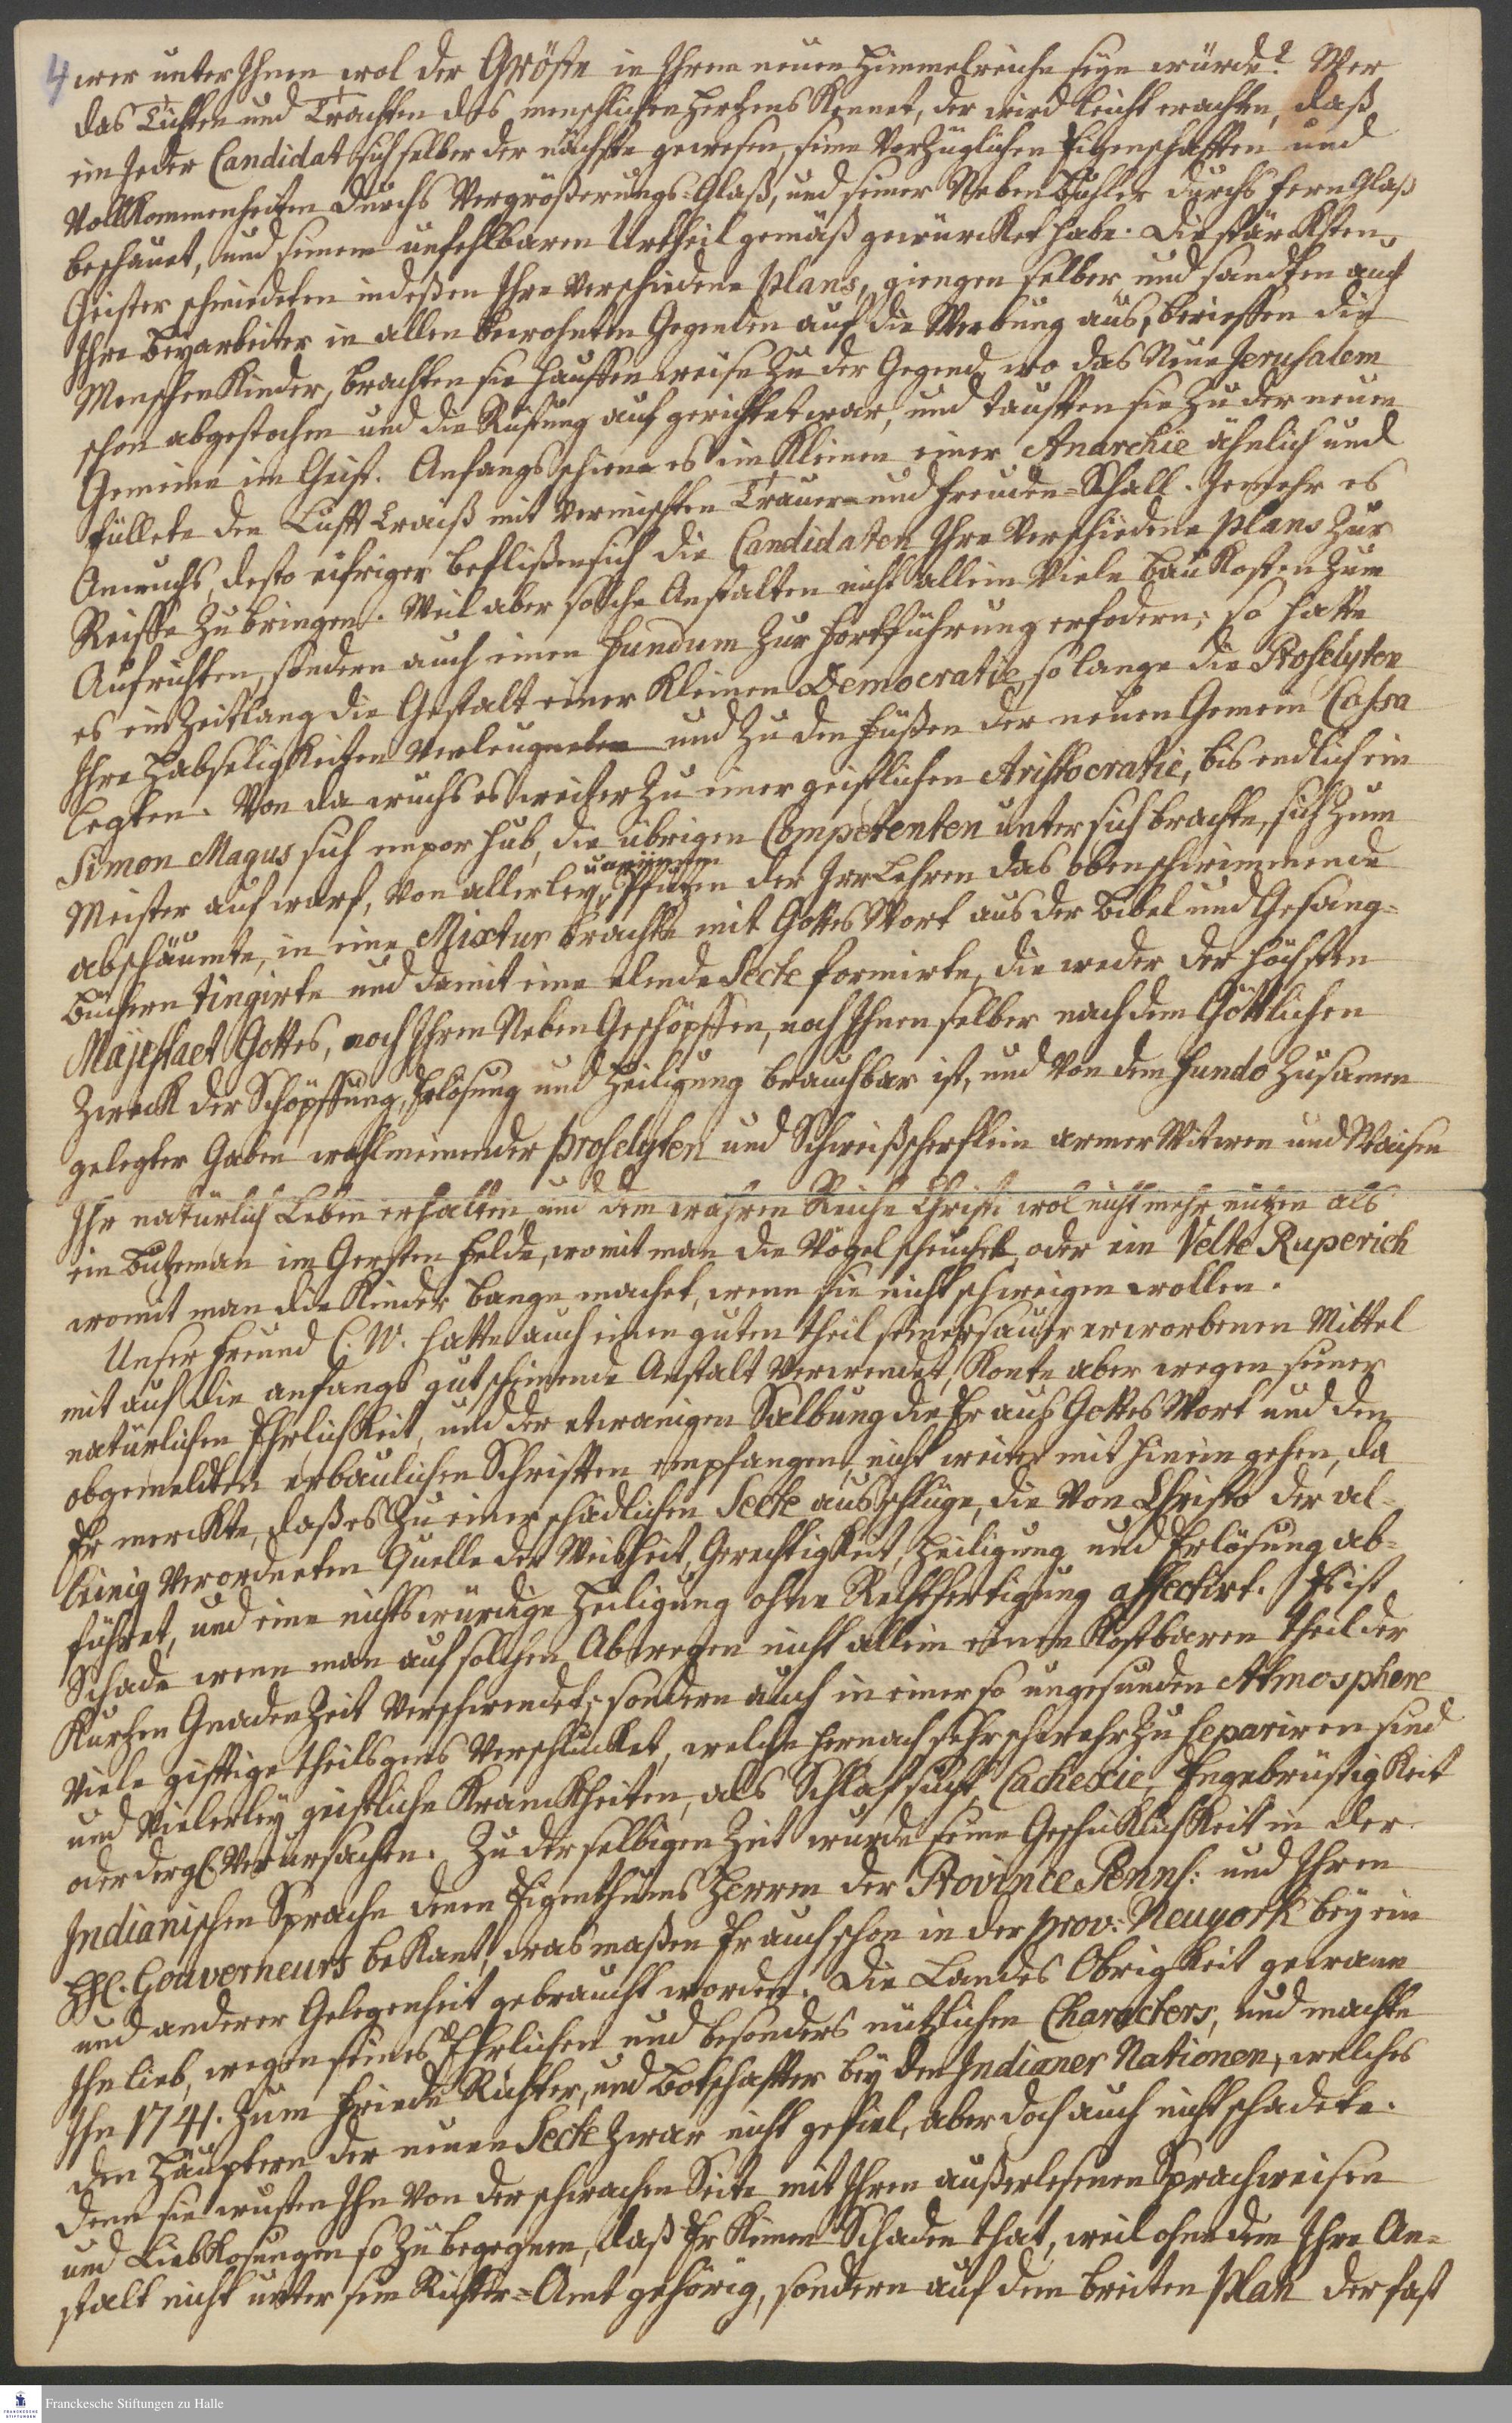 4 wer unter Ihnen wol der Gröste in Ihrem neuen Himmelreiche seyn würde? Wer
das Tichten und Trachten des menschlichen Hertzens Kennet, der wird leicht erachten, daß
ein Jeder Candidat sich selber der nächste gewesen, seine Vorzüglichen Eigenschafften und
Vollkommenheiten durchs Vergrößerungs-Glaß, und seiner Neben Buhler durchs fern Glaß
beschauet, und seinem unfehlbaren Urtheil gemäß gewürcket habe. Die stärcksten
Geister schmiedeten indeßen Ihre verschiedene plans, giengen selber und sandten auch
Ihre Beyarbeiter in allen bewohnten Gegenden auf die Werbung aus, berieffen die
Menschen Kinder, brachten sie hauffen weise zu der Gegend, wo das Neue Jerusalem
schon abgestochen und die Rüstung auf gerichtet war, und taufften sie zu der neuen
Gemeine im Geist. Anfangs schiene es im Kleinen einer Anarchie ähnlich und
füllete den Lufft Craiß mit vermischten Trauer- und Freuden-Schall. Jemehr es
Anwuchs, desto eifriger beflißen sich die Candidaten Ihre verschiedene plans zur
Reiffe zu bringen. Weil aber solche Anstalten nicht allein viele Bau Kosten zum
Aufrichten, sondern auch einen Fundum zur Fortführung erfodern; so hatte
es ein Zeitlang die Gestalt einer Kleinen Democratie, so lange die Proselyten
Ihre Habseligkeiten verleugneten und zu den Füßen der neuen Gemein Cassa
legten. Von da wuchs es weiter zu einer geistlichen Aristocratie, bis endlich ein
Simon Magus sich empor hub, die übrigen Competenten unter sich brachte, sich zum
Meister auf warf, von allerley Pfützen der Irr Lehren das oben schwimmende
abschäumte, in eine Mixtur brachte mit Gottes Wort aus der Bibel und Gesang-
Büchern tingirte und damit eine elende Secte formirte, die weder der höchsten
Majestaet Gottes, noch Ihren Neben Geschöpffen, noch Ihnen selber nach dem Göttlichen
Zweck der Schöpffung, Erlösung und Heiligung brauchbar ist, und von dem Fundo zusamen
gelegter Gaben wohlmeinender proselyten und Schweißscherflein armer Witwen und Waisen
Ihr natürlich Leben erhalten, und dem wahren Reiche Christi wol nicht mehr nutzen als
ein Butzeman im Gersten Felde, womit man die Vögel scheuchet, oder ein Velte Ruperich
womit man die Kinder bange machet, wenn sie nicht schweigen wollen.
Unser Freund C. W. hatte auch einen guten theil seiner sauer erworbenen Mittel
mit auf die anfangs gut scheinende Anstalt verwendet, Konte aber wegen seiner
natürlichen Ehrlichkeit, und der etwanigen Salbung die Er aus Gottes Wort und den
obgemeldten erbaulichen Schrifften empfangen, nicht weiter mit hinein gehen, da
Er merckte, daß es zu einer schädlichen Secte ausschlüge, die von Christo der al-
leinig verordneten Quelle der Weisheit, Gerechtigkeit, Heiligung und Erlösung ab-
führet, und eine nichtswürdige Heiligung ohne Rechtfertigung affectirt. Es ist
Schade wenn man auf solchen Abwegen nicht allein einen Kostbaren theil der
Kurtzen Gnaden Zeit verschwendet; sondern auch in einer so ungesunden Atmosphere
viele gifftige theilgens verschlucket, welche hernach sehr schwehr zu separiren sind
und vielerley geistliche Kranckheiten, als Schlafsucht, Cachexie, Engebrüstigkeit
oder dergl. verursachen. Zu derselbigen Zeit wurde seine Geschicklichkeit in der
Indianischen Sprache denen Eigenthums Herren der Province Penns: und Ihren
HH. Gouverneurs bekant, was maßen Er auch schon in der prov: Neuyork bey ein
und anderer Gelegenheit gebraucht worden. Die Landes Obrigkeit gewann
Ihn lieb, wegen seines Ehrlichen und besonders nützlichen Characters, und machte
Ihn 1741. zum Friede Richter, und Botschaffter bey den Indianer Nationen, welches
den Häuptern der neuen Secte zwar nicht gefiel, aber doch auch nicht schadete.
denn sie wusten Ihn von der schwachen Seite mit Ihren außerlesenen Sprachweisen
und Liebkosungen so zu begegnen, daß Er Keinen Schaden that, weil ohne dem Ihre An-
stalt nicht unter sein Richter-Amt gehörig, sondern auf dem breiten plan der fast
Franckesche Stiftungen zu Halle